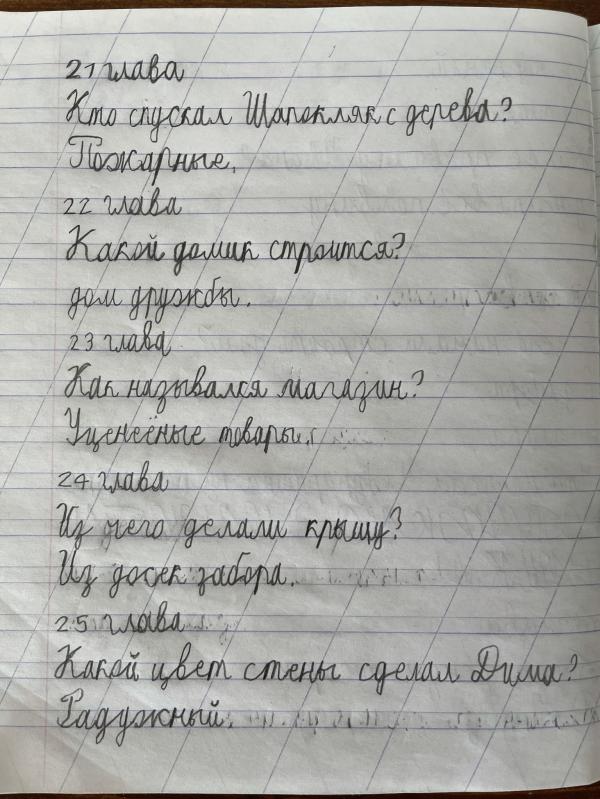 21 глава
Кто спускал Шапокляк с дерева?
Пожарные.
22 глава
Какой домик строится?
дом дружбы.
23 глава
Как назывался магазин?
Уценеёные товары.
24 глава
Из чего делали крышу?
Из досек забора.
25 глава
Какой цвет стены сделал Дима?
Радужный.